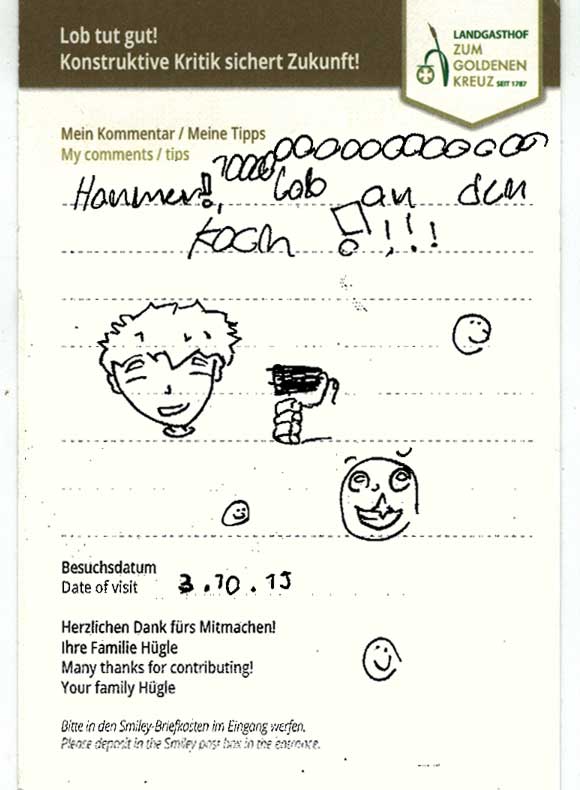 Lob tut gut!
Konstruktive Kritik sichert Zukunft!
LANDGASTHOF
ZUM
GOLDENEN
KREUZ SEIT 1787
Mein Kommentar / Meine Tipps
My comments / tips
10000000000000000000
Hammer!, Lob an den
Koch !!!!
Besuchsdatum
Date of visit 3.10.15
Herzlichen Dank fürs Mitmachen!
Ihre Familie Hügle
Many thanks for contributing!
Your family Hügle
Bitte in den Smiley-Briefkasten im Eingang werfen.
Please deposit in the Smiley post box in the entrance.